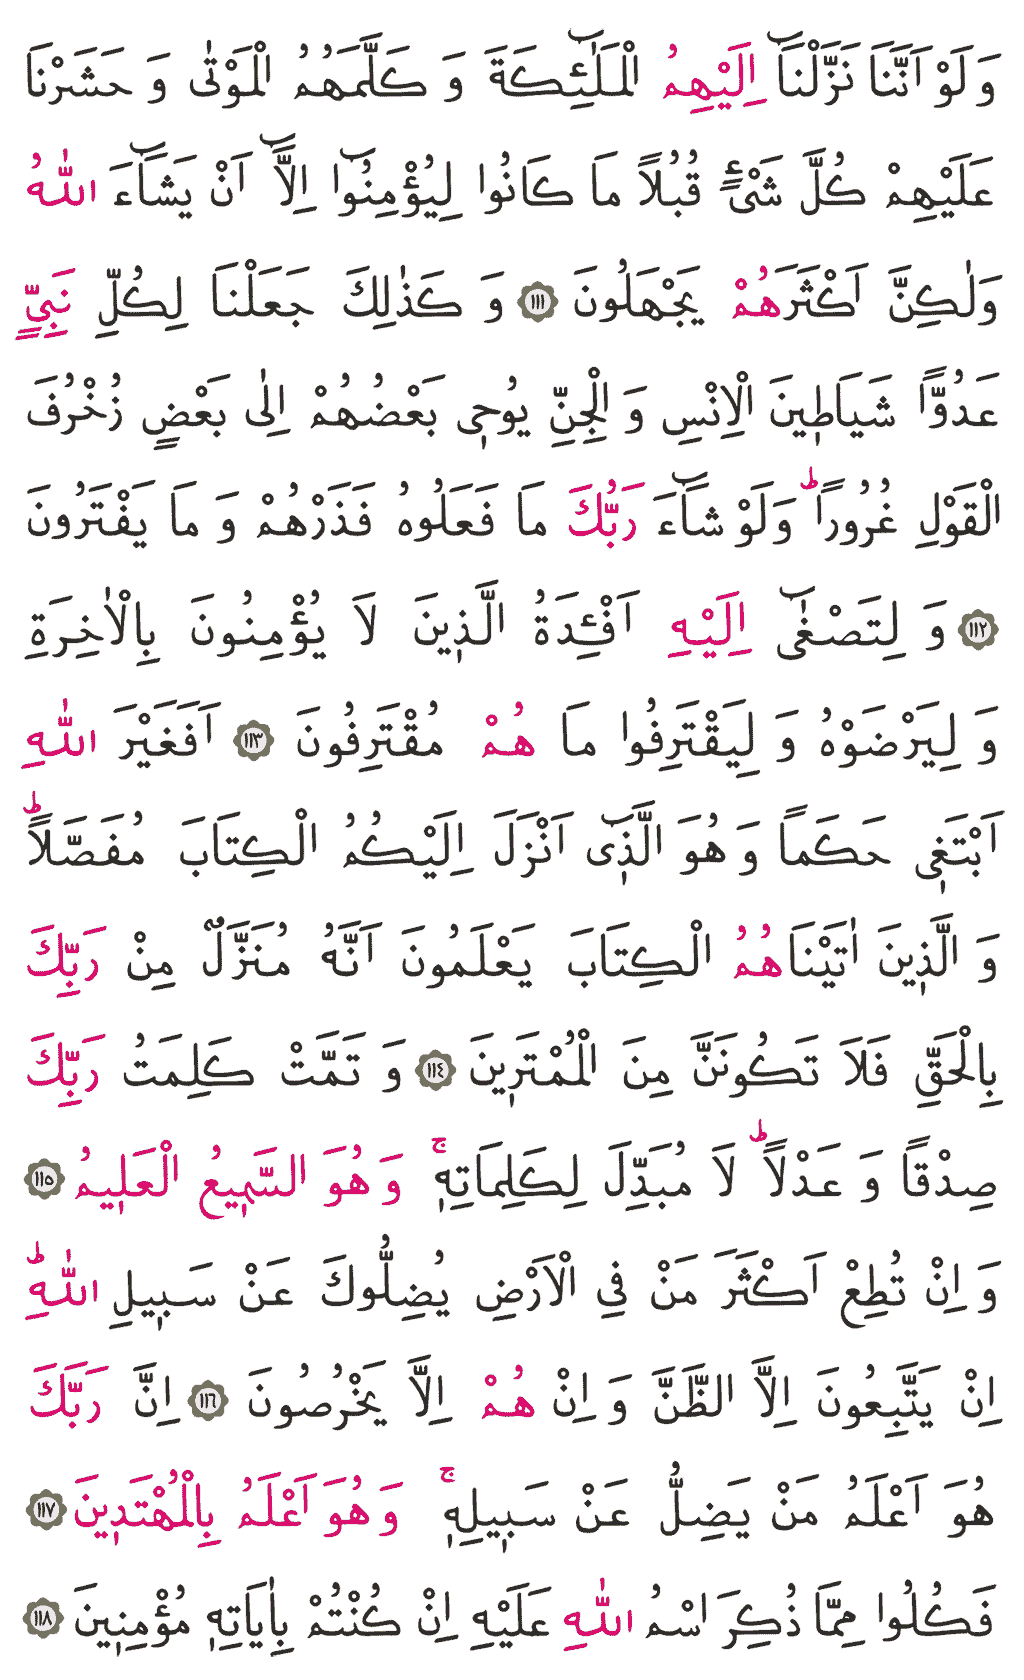 وَ لَوْ اَنَّنَا نَزَّلْنَٓا اِلَيْهِمُ الْمَلٰٓئِكَةَ وَ كَلَّمَهُمُ الْمَوْتٰى وَ حَشَرْنَا
عَلَيْهِمْ كُلَّ شَيْءٍ قُبُلًا مَا كَانُوا لِيُؤْمِنُٓوا اِلَّٓا اَنْ يَشَٓاءَ اللّٰهُ
وَلٰكِنَّ اَكْثَرَهُمْ يَجْهَلُونَ ﴿١١١﴾ وَ كَذٰلِكَ جَعَلْنَا لِكُلِّ نَبِيٍّ
عَدُوًّا شَيَاط۪ينَ الْاِنْسِ وَ الْجِنِّ يُوح۪ي بَعْضُهُمْ اِلٰى بَعْضٍ زُخْرُفَ
الْقَوْلِ غُرُورًاۜ وَلَوْ شَٓاءَ رَبُّكَ مَا فَعَلُوهُ فَذَرْهُمْ وَ مَا يَفْتَرُونَ
﴿١١٢﴾ وَ لِتَصْغٰٓى اِلَيْهِ اَفْـِٔدَةُ الَّذ۪ينَ لَا يُؤْمِنُونَ بِالْاٰخِرَةِ
وَ لِيَرْضَوْهُ وَ لِيَقْتَرِفُوا مَا هُمْ مُقْتَرِفُونَ ﴿١١٣﴾ اَفَغَيْرَ اللّٰهِ
اَبْتَغ۪ي حَكَمًا وَ هُوَ الَّذ۪ٓي اَنْزَلَ اِلَيْكُمُ الْكِتَابَ مُفَصَّلًاۜ
وَ الَّذ۪ينَ اٰتَيْنَاهُمُ الْكِتَابَ يَعْلَمُونَ اَنَّهُ مُنَزَّلٌ مِنْ رَبِّكَ
بِالْحَقِّ فَلَا تَكُونَنَّ مِنَ الْمُمْتَر۪ينَ ﴿١١٤﴾ وَ تَمَّتْ كَلِمَتُ رَبِّكَ
صِدْقًا وَ عَدْلًاۜ لَا مُبَدِّلَ لِكَلِمَاتِه۪ۚ وَ هُوَ السَّم۪يعُ الْعَل۪يمُ ﴿١١٥﴾
وَ اِنْ تُطِعْ اَكْثَرَ مَنْ فِي الْاَرْضِ يُضِلُّوكَ عَنْ سَب۪يلِ اللّٰهِۜ
اِنْ يَتَّبِعُونَ اِلَّا الظَّنَّ وَ اِنْ هُمْ اِلَّا يَخْرُصُونَ ﴿١١٦﴾ اِنَّ رَبَّكَ
هُوَ اَعْلَمُ مَنْ يَضِلُّ عَنْ سَب۪يلِه۪ۚ وَ هُوَ اَعْلَمُ بِالْمُهْتَد۪ينَ ﴿١١٧﴾
فَكُلُوا مِمَّا ذُكِرَ اسْمُ اللّٰهِ عَلَيْهِ اِنْ كُنْتُمْ بِاٰيَاتِه۪ مُؤْمِن۪ينَ ﴿١١٨﴾